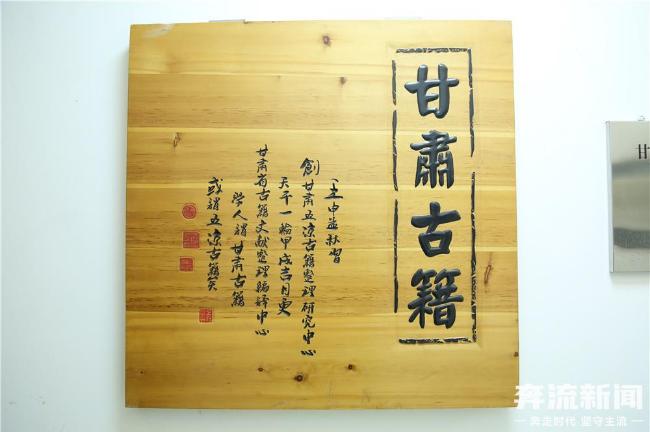 甘肅古籍
創甘肅五涼古籍整理研究中心
天干一輪甲戌吉月更
甘肅省古籍文献整理編譯中心
學人謂甘肅古籍
或謂五涼古籍矣
奔流新闻
奔走时代 坚守主流